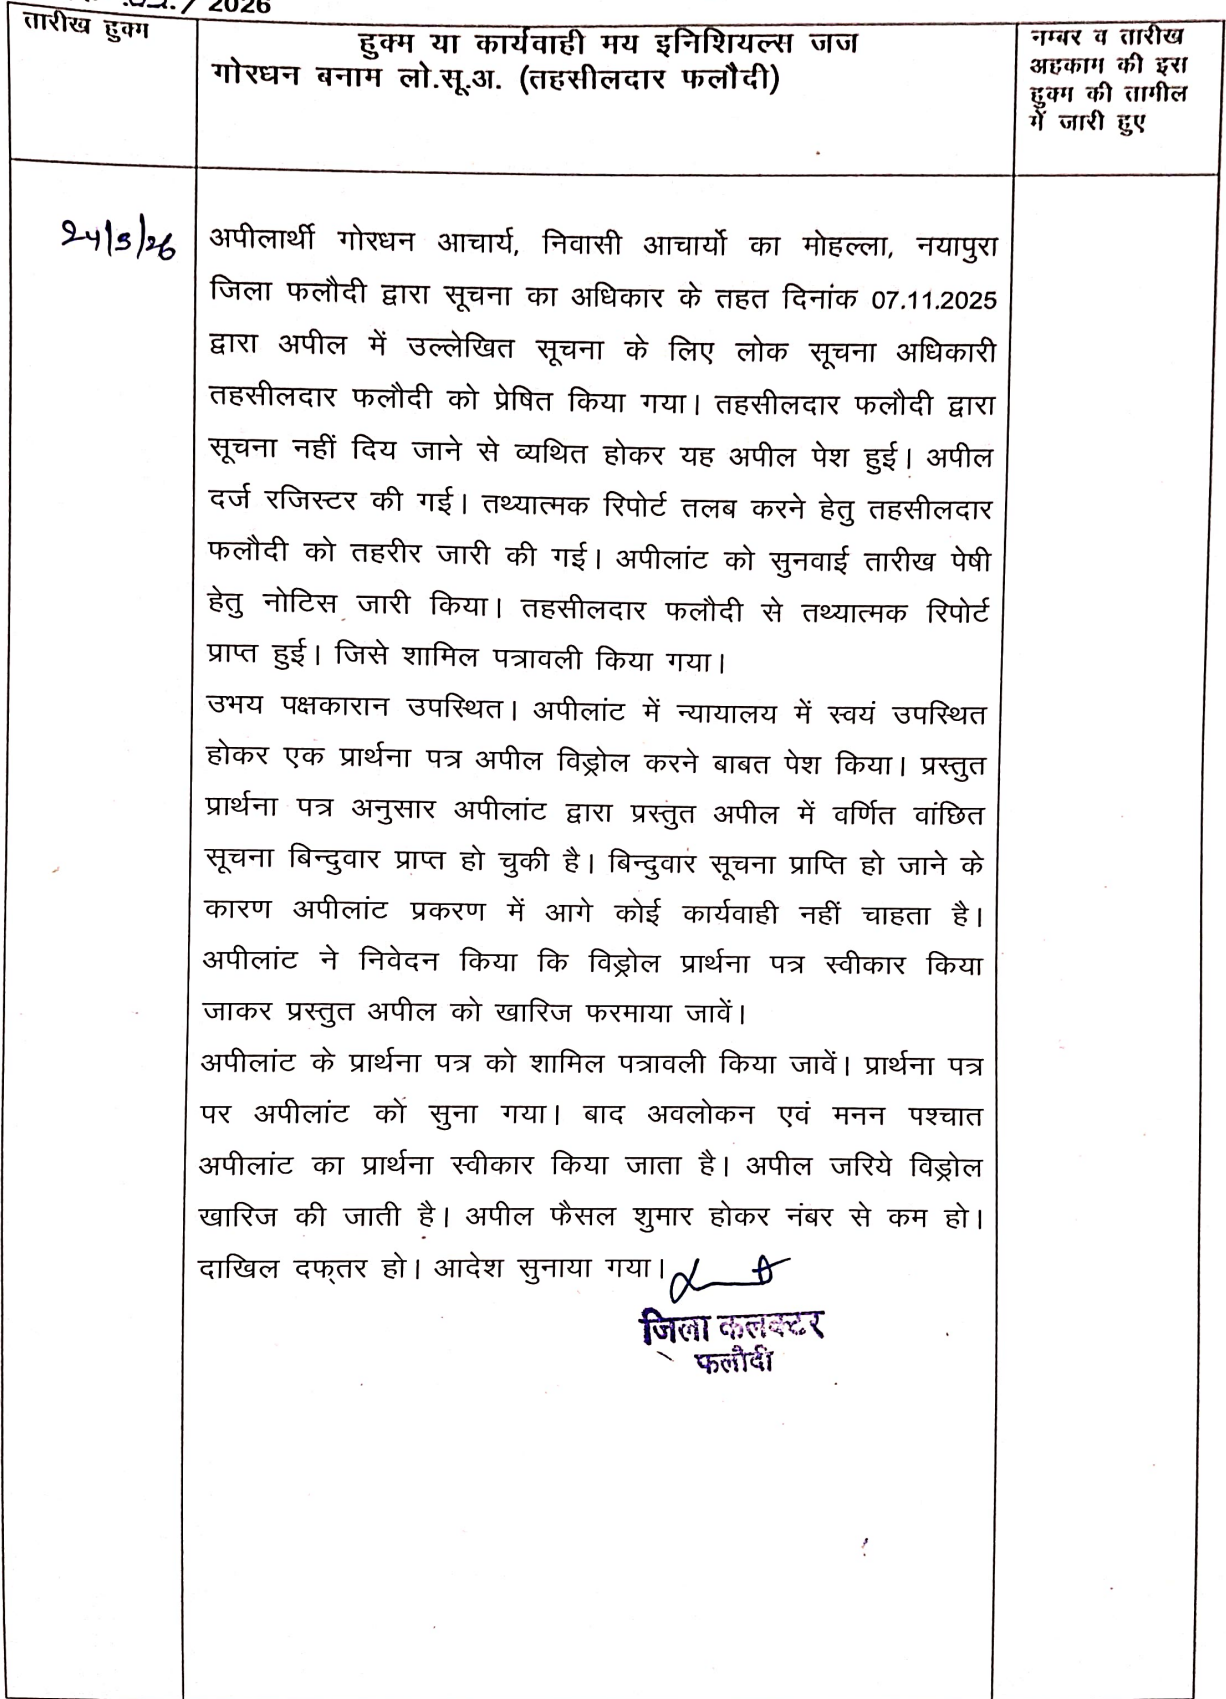 2026
तारीख हुक्म
हुक्म या कार्यवाही मय इनिशियल्स जज
गोरधन बनाम लो.सू.अ. (तहसीलदार फलौदी)
नम्बर व तारीख
अहकाम की इस
हुक्म की तामील
में जारी हुए
अपीलार्थी गोरधन आचार्य, निवासी आचार्यो का मोहल्ला, नयापुरा
जिला फलौदी द्वारा सूचना का अधिकार के तहत दिनांक 07.11.2025
द्वारा अपील में उल्लेखित सूचना के लिए लोक सूचना अधिकारी
तहसीलदार फलौदी को प्रेषित किया गया। तहसीलदार फलौदी द्वारा
सूचना नहीं दिय जाने से व्यथित होकर यह अपील पेश हुई। अपील
दर्ज रजिस्टर की गई। तथ्यात्मक रिपोर्ट तलब करने हेतु तहसीलदार
फलौदी को तहरीर जारी की गई। अपीलांट को सुनवाई तारीख पेषी
हेतु नोटिस जारी किया। तहसीलदार फलौदी से तथ्यात्मक रिपोर्ट
प्राप्त हुई। जिसे शामिल पत्रावली किया गया।
उभय पक्षकारान उपस्थित। अपीलांट में न्यायालय में स्वयं उपस्थित
होकर एक प्रार्थना पत्र अपील विड्रोल करने बाबत पेश किया। प्रस्तुत
प्रार्थना पत्र अनुसार अपीलांट द्वारा प्रस्तुत अपील में वर्णित वांछित
सूचना बिन्दुवार प्राप्त हो चुकी है। बिन्दुवार सूचना प्राप्ति हो जाने के
कारण अपीलांट प्रकरण में आगे कोई कार्यवाही नहीं चाहता है।
अपीलांट ने निवेदन किया कि विड्रोल प्रार्थना पत्र स्वीकार किया
जाकर प्रस्तुत अपील को खारिज फरमाया जावें।
अपीलांट के प्रार्थना पत्र को शामिल पत्रावली किया जावें। प्रार्थना पत्र
पर अपीलांट को सुना गया। बाद अवलोकन एवं मनन पश्चात
अपीलांट का प्रार्थना स्वीकार किया जाता है। अपील जरिये विड्रोल
खारिज की जाती है। अपील फैसल शुमार होकर नंबर से कम हो।
दाखिल दफ्तर हो। आदेश सुनाया गया।
जिला कलक्टर
फलौदी